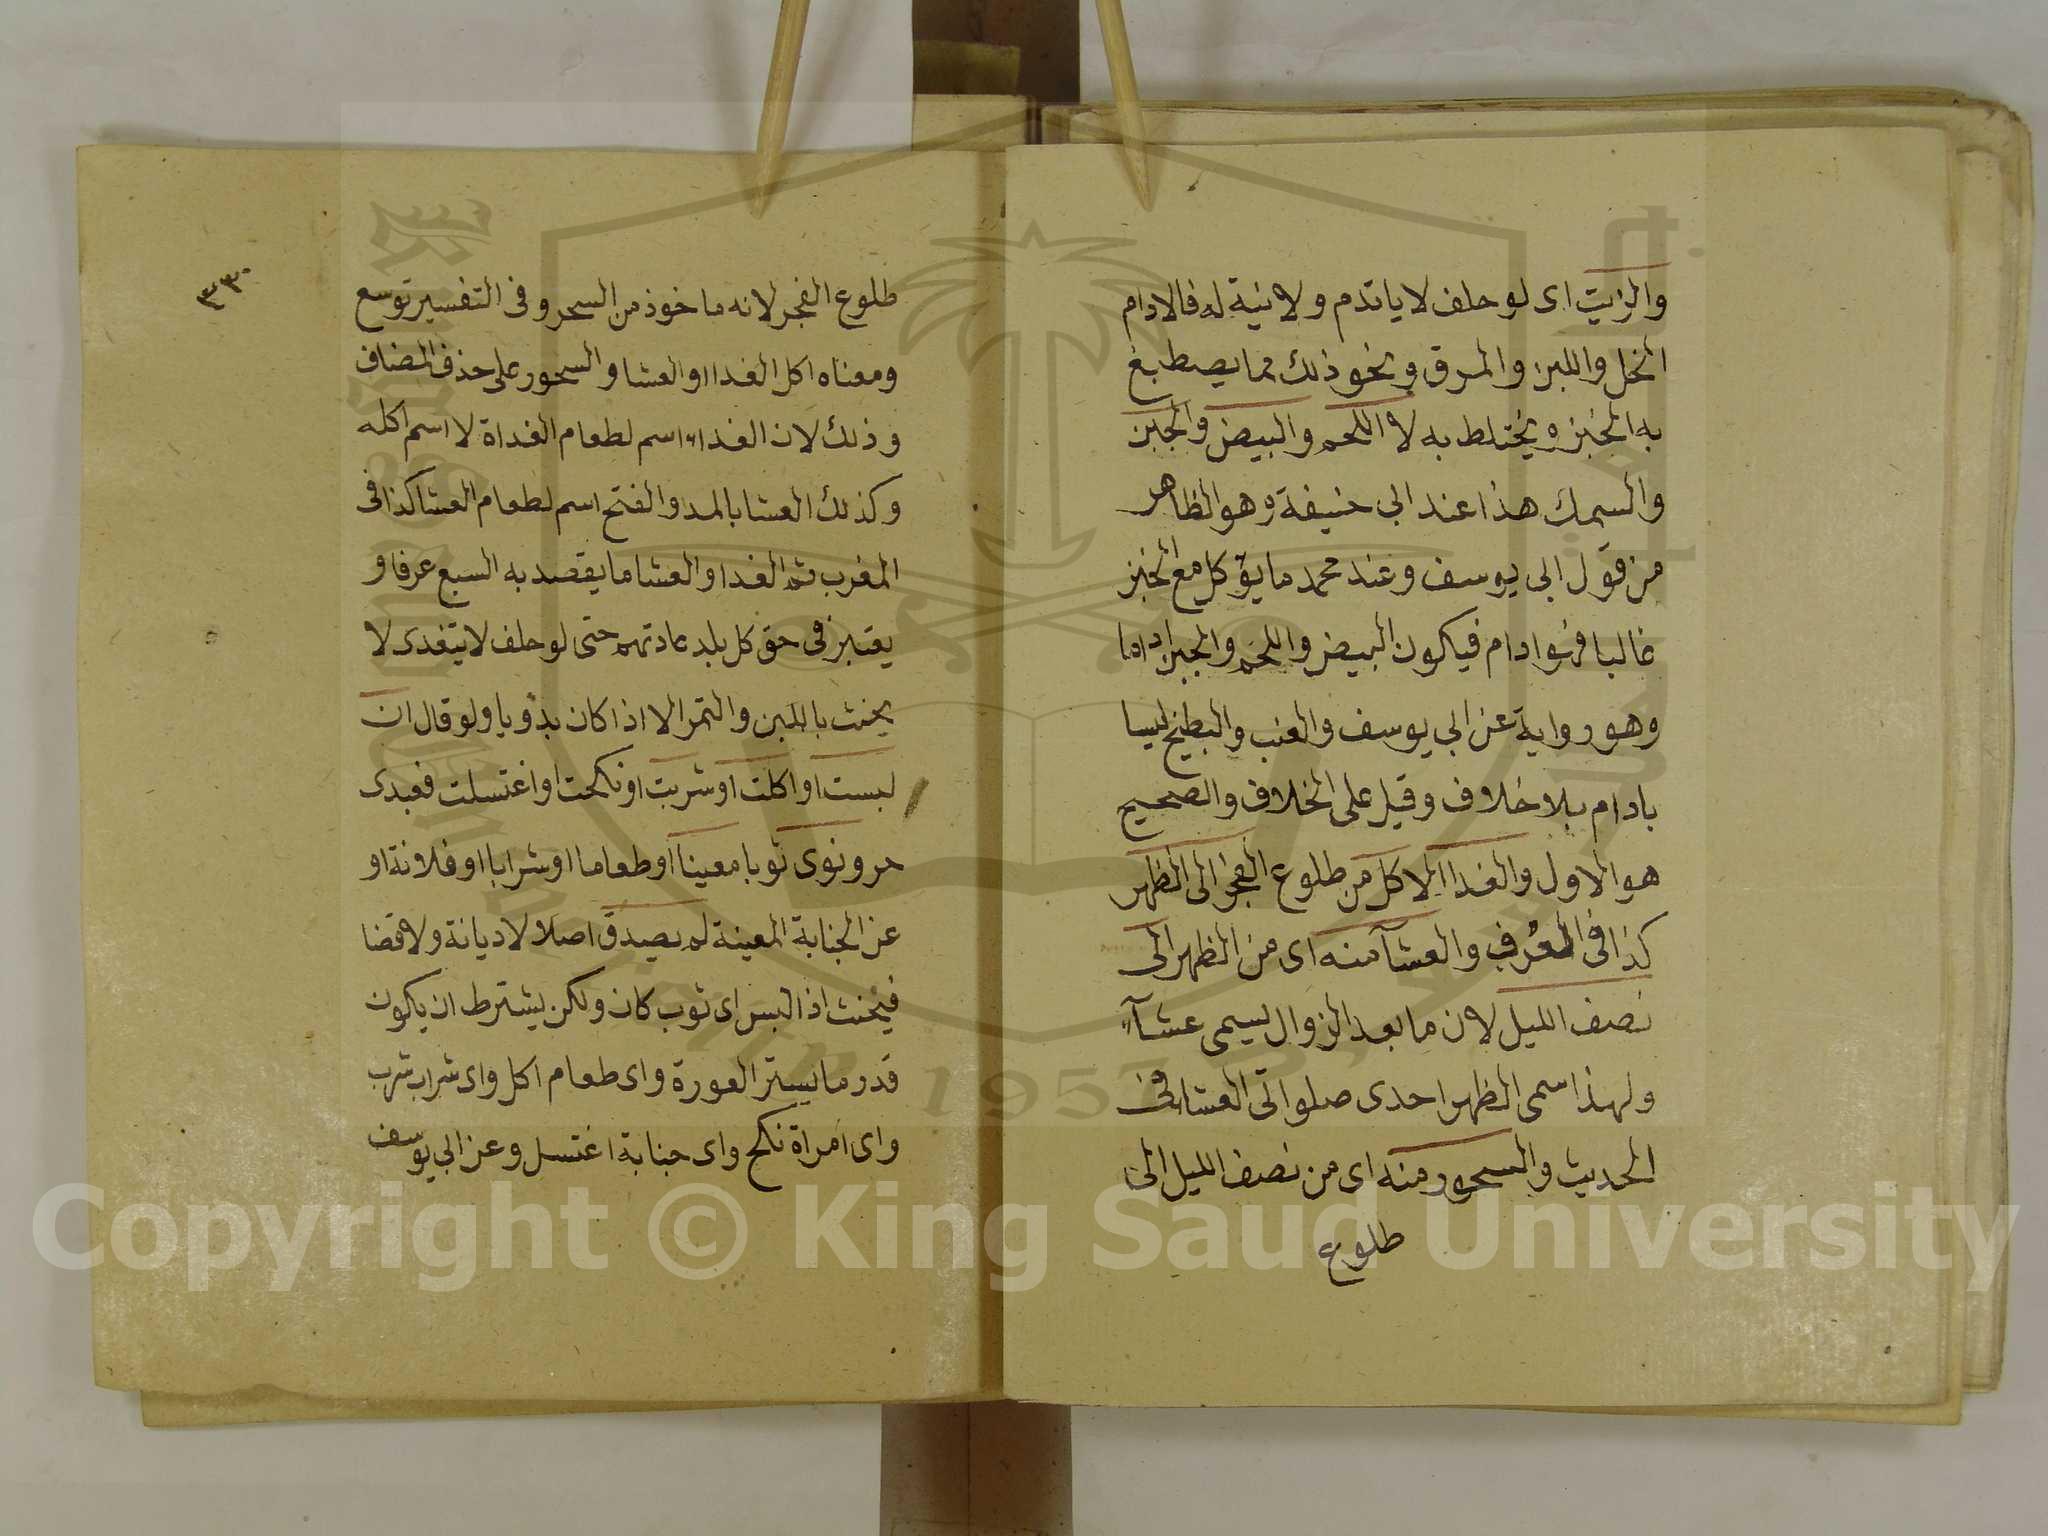 والزيت اى لو حلف لا ياتدم ولا نية له فالادام
الخل واللبن والمرق ونحو ذلك مما يصطبغ
به الخبز ويختلط به لا اللحم والبيض والجبن
والسمك هذا عند ابى حنيفة وهو الظاهر
من قول ابى يوسف وعند محمد ما يؤكل مع الخبز
غالبا فهو ادام فيكون البيض واللحم والجبن اداما
وهو رواية عن ابى يوسف والعنب والبطيخ ليسا
بادام بلا خلاف وقيل على الخلاف والصحيح
هو الاول والغدا الاكل من طلوع الفجر الى الظهر
كذا فى المعرف والعشآ منه اى من الظهر الى
نصف الليل لان ما بعد الزوال يسمى عشآء
ولهذا سمى الظهر احدى صلواتى العشا فى
الحديث والسحور منه اى من نصف الليل الى
طلوع
٣٣٠
طلوع الفجر لانه ماخوذ من السحر وفى التفسير توسع
ومعناه اكل الغدا او العشا والسحور على حذف المضاف
وذلك لان الغداء اسم لطعام الغداة لا اسم اكله
وكذلك العشا بالمد والفتح اسم لطعام العشا كذا فى
المغرب ثم الغدا والعشا ما يقصد به السبع عرفا و
يعتبر فى حق كل بلد عادتهم حتى لو حلف لا يتغدى لا
يحنث باللبن والتمر الا اذا كان بدويا ولو قال ان
لبست او اكلت او شربت او نكحت او اغتسلت فعبدى
حر ونوى ثوبا معينا او طعاما او شرابا او فلانة او
عن الجنابة المعينة لم يصدق اصلا لا ديانة ولا قضا
فيحنث اذا لبس اى ثوب كان ولكن يشترط ان يكون
قدر ما يستر العورة واى طعام اكل واى شراب شرب
واى امراة نكح واى جنابة اغتسل وعن ابى يوسف
1957
Copyright © King Saud University